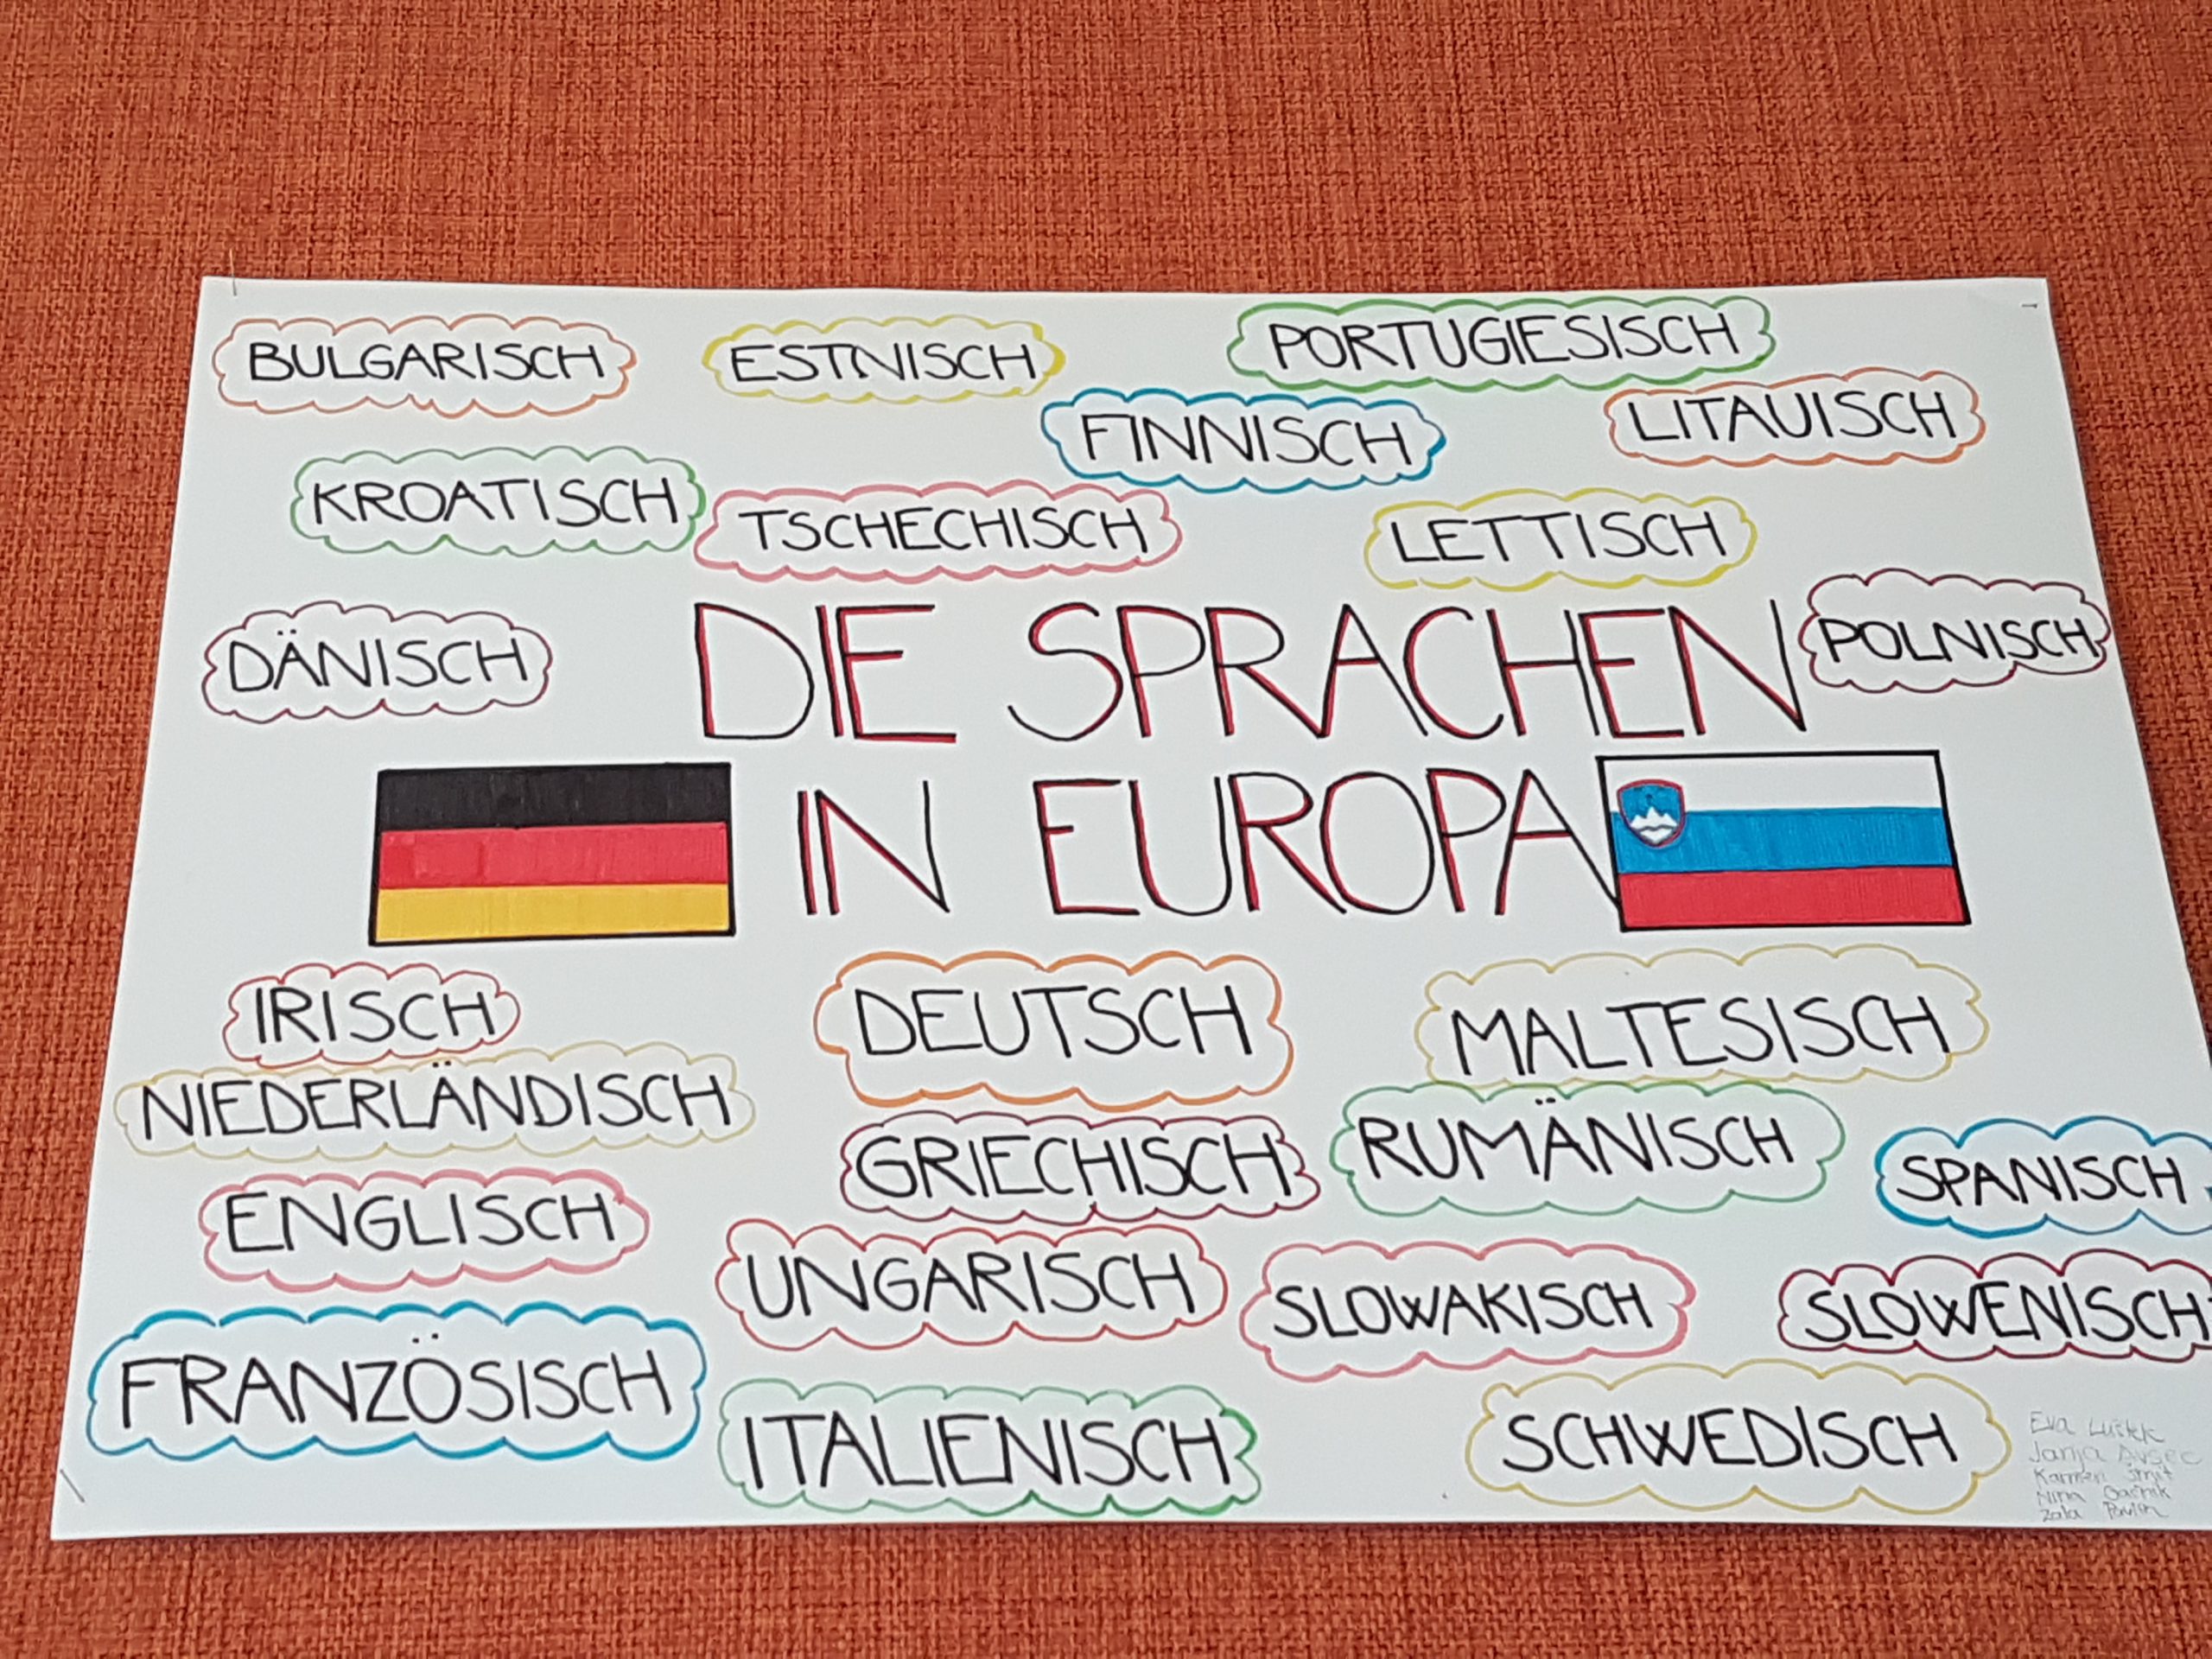 BULGARISCH
ESTNISCH
PORTUGIESISCH
FINNISCH
LITAUISCH
KROATISCH
TSCHECHISCH
LETTISCH
DÄNISCH
DIE SPRACHEN
POLNISCH
IN EUROPA
IRISCH
DEUTSCH
MALTESISCH
NIEDERLÄNDISCH
GRIECHISCH
RUMÄNISCH
SPANISCH
ENGLISCH
UNGARISCH
SLOWAKISCH
SLOWENISCH
FRANZÖSISCH
ITALIENISCH
SCHWEDISCH
Eva
Janja Avsec
Karmen Šmit
Nina
Zala Pavlin